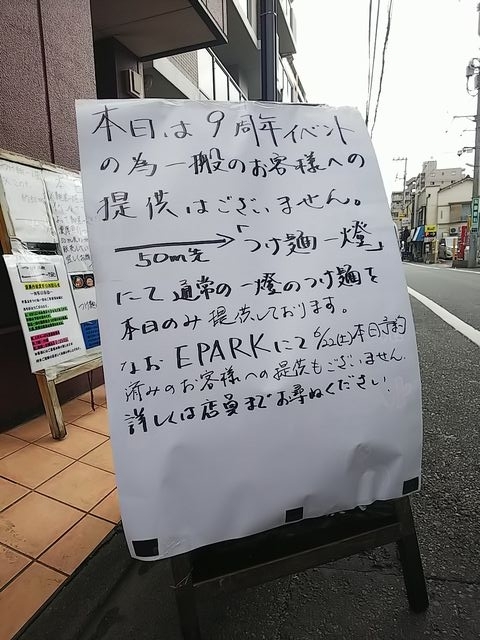 本日は9周年イベント
の為一搬のお客様への
提供はございません。
50m先
「つけ麺一燈」
にて通常の一燈のつけ麺を
本日のみ提供しております。
なおEPARKにて6/22(土)本日予約
済みのお客様への提供もございません
詳しくは店員までお尋ねください